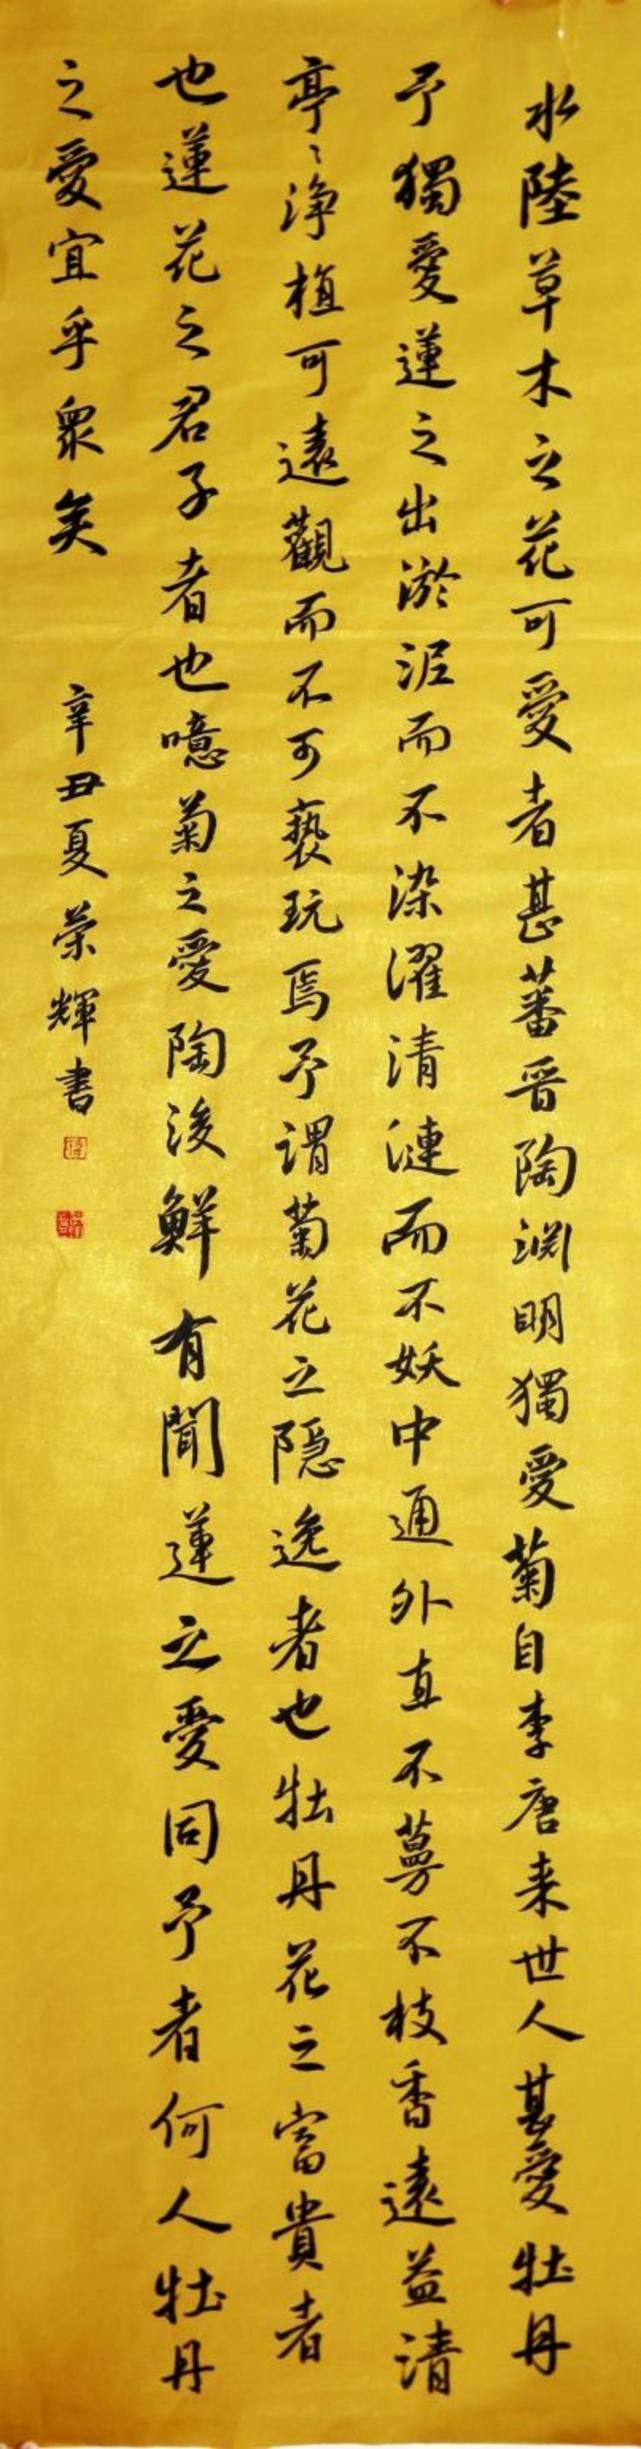 水陸草木之花可愛者甚蕃晉陶渊明獨愛菊自李唐来世人甚愛牡丹
予獨愛蓮之出淤泥而不染濯清漣而不妖中通外直不蔓不枝香遠益清
亭〻淨植可遠觀而不可褻玩焉予謂菊花之隱逸者也牡丹花之富貴者
也蓮花之君子者也噫菊之愛陶後鮮有聞蓮之愛同予者何人牡丹
之愛宜乎衆矣
辛丑夏荣輝書